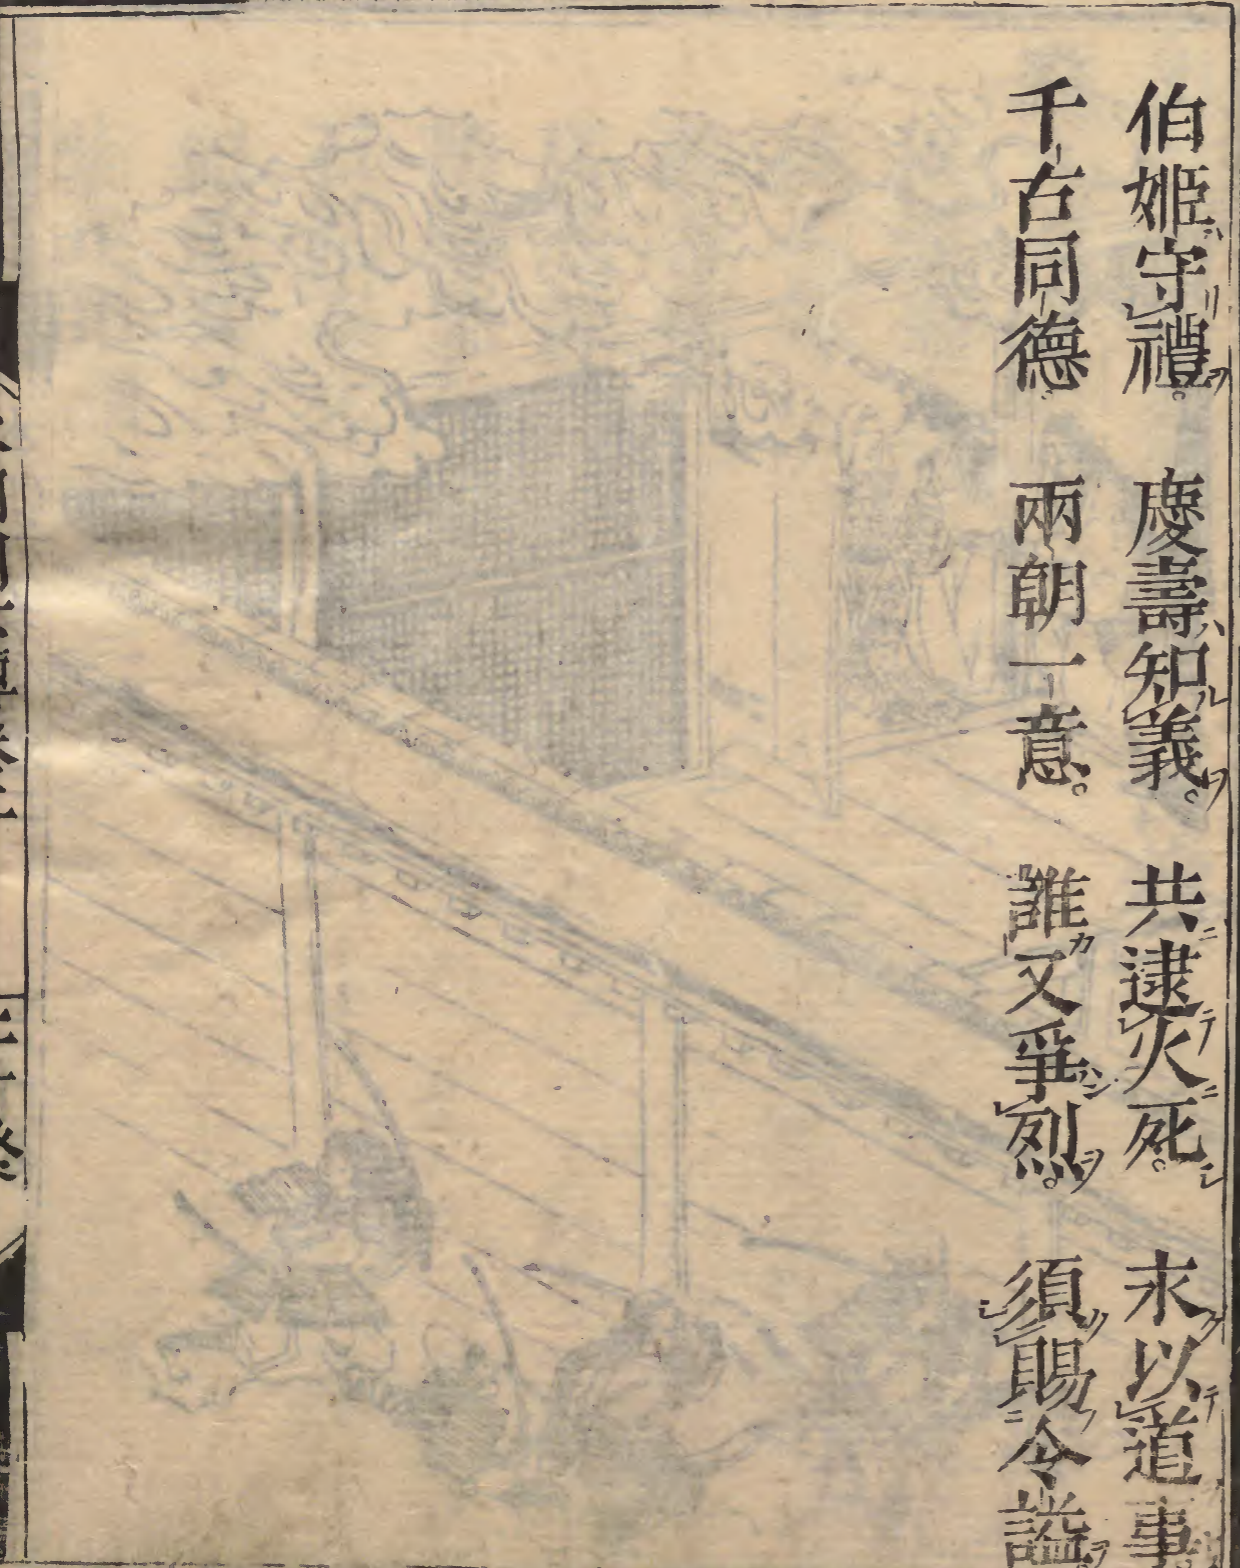 伯姬守禮。慶壽知義。共逮火死。永以道
千古同德。兩朝一意。誰又爭烈。須賜令謚